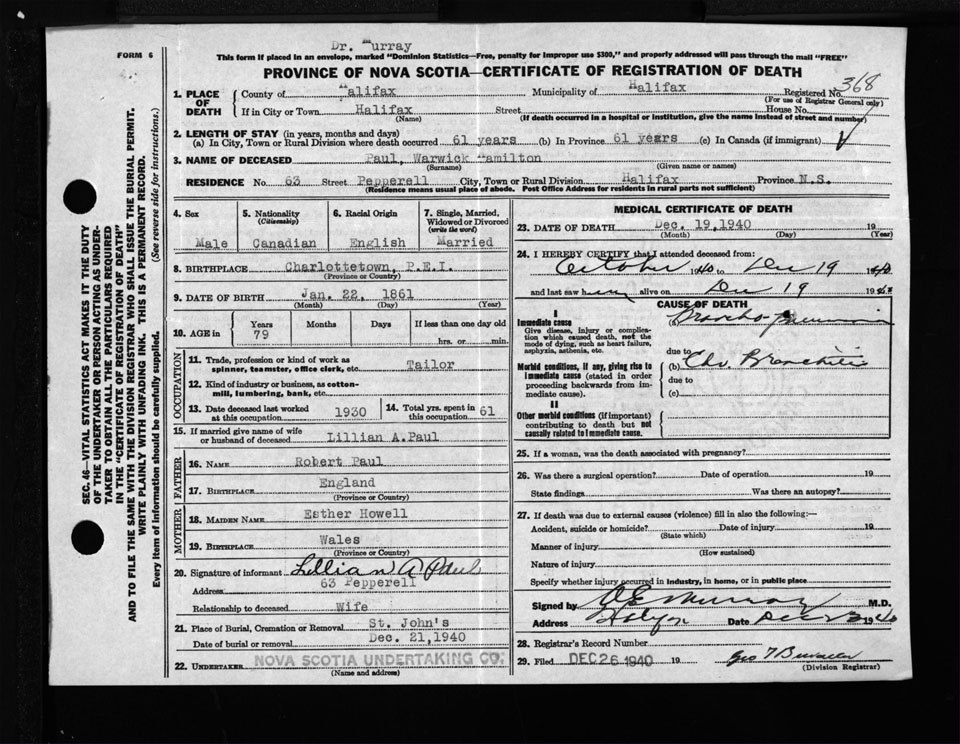 Dr. Murray
FORM 6
This form if placed in an envelope, marked "Dominion Statistics—Free, penalty for improper use $300," and properly addressed will pass through the mail "FREE"
PROVINCE OF NOVA SCOTIA—CERTIFICATE OF REGISTRATION OF DEATH
1. PLACE OF DEATH
County of Halifax Municipality of Halifax Registered No. 368
(For use of Registrar General only)
If in City or Town Halifax Street House No.
(Name) (If death occurred in a hospital or institution, give the name instead of street and number)
2. LENGTH OF STAY (in years, months and days)
(a) In City, Town or Rural Division where death occurred 61 years (b) In Province 61 years (c) In Canada (if immigrant)
3. NAME OF DECEASED Paul, Warwick Hamilton
(Surname) (Given name or names)
RESIDENCE No 63 Street Pepperell City, Town or Rural Division Halifax Province N.S.
(Residence means usual place of abode. Post Office Address for residents in rural parts not sufficient)
4. Sex 5. Nationality (Citizenship) 6. Racial Origin 7. Single, Married, Widowed or Divorced (write the word)
Male Canadian English Married
8. BIRTHPLACE Charlottetown, P.E.I.
(Province or Country)
9. DATE OF BIRTH Jan. 22, 1861
(Month) (Day) (Year)
10. AGE in Years Months Days If less than one day old
79 hrs. or min.
OCCUPATION
11. Trade, profession or kind of work as spinner, teamster, office clerk, etc. Tailor
12. Kind of industry or business, as cotton-mill, lumbering, bank, etc.
13. Date deceased last worked at this occupation 1930
14. Total yrs. spent in this occupation 61
15. If married give name of wife or husband of deceased Lillian A. Paul
FATHER
16. NAME Robert Paul
17. BIRTHPLACE England
(Province or Country)
MOTHER
18. MAIDEN NAME Esther Howell
19. BIRTHPLACE Wales
(Province or Country)
20. Signature of informant Lillian A Paul
Address 63 Pepperell
Relationship to deceased Wife
21. Place of Burial, Cremation or Removal St. John's
Date of burial or removal Dec. 21, 1940
22. UNDERTAKER NOVA SCOTIA UNDERTAKING CO.
(Name and address)
MEDICAL CERTIFICATE OF DEATH
23. DATE OF DEATH Dec. 19, 1940 19
(Month) (Day) (Year)
24. I HEREBY CERTIFY that I attended deceased from:
October 1940 to Dec 19 1940
and last saw h alive on Dec 19 19
CAUSE OF DEATH
I
Immediate cause
Give disease, injury or complication which caused death, not the mode of dying, such as heart failure, asphyxia, asthenia, etc.
(a) Broncho-pneumonia
due to
Morbid conditions, if any, giving rise to immediate cause (stated in order proceeding backwards from immediate cause).
(b) Chr Bronchitis
due to
(c)
II
Other morbid conditions (if important) contributing to death but not causally related to immediate cause.
25. If a woman, was the death associated with pregnancy?
26. Was there a surgical operation? Date of operation 19
State findings Was there an autopsy?
27. If death was due to external causes (violence) fill in also the following:—
Accident, suicide or homicide? Date of injury 19
(State which)
Manner of injury
(How sustained)
Nature of injury
Specify whether injury occurred in industry, in home, or in public place
Signed by Murray M.D.
Address Halifax Date Dec 23 1940
28. Registrar's Record Number
29. Filed DEC 26 1940 19
(Division Registrar)
SEC. 46—VITAL STATISTICS ACT MAKES IT THE DUTY
OF THE UNDERTAKER OR PERSON ACTING AS UNDERTAKER TO OBTAIN ALL THE PARTICULARS REQUIRED
IN THE "CERTIFICATE OF REGISTRATION OF DEATH"
AND TO FILE THE SAME WITH THE DIVISION REGISTRAR WHO SHALL ISSUE THE BURIAL PERMIT.
WRITE PLAINLY WITH UNFADING INK. THIS IS A PERMANENT RECORD.
Every item of information should be carefully supplied. (See reverse side for instructions.)